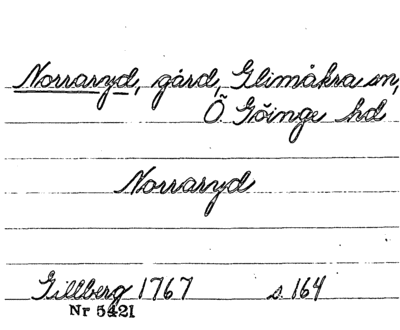 Norraryd, gård, Glimåkra sn,
Ö Göinge hd
Norraryd
Gillberg 1767 s. 164
Nr 5421